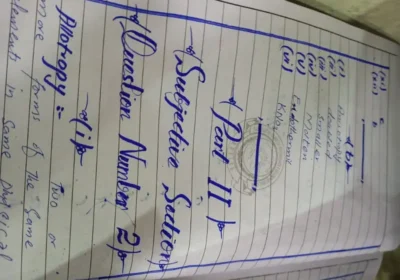 (xi) c
(xii) b
(i)
(ii)
(iii) Smaller
(iv)
(v) Endothermic
(vi)
(Part II)
(Subjective Section)
(Question Number 2)
(i)
Allotropy :- Two or
more forms of the same
elements in same physical